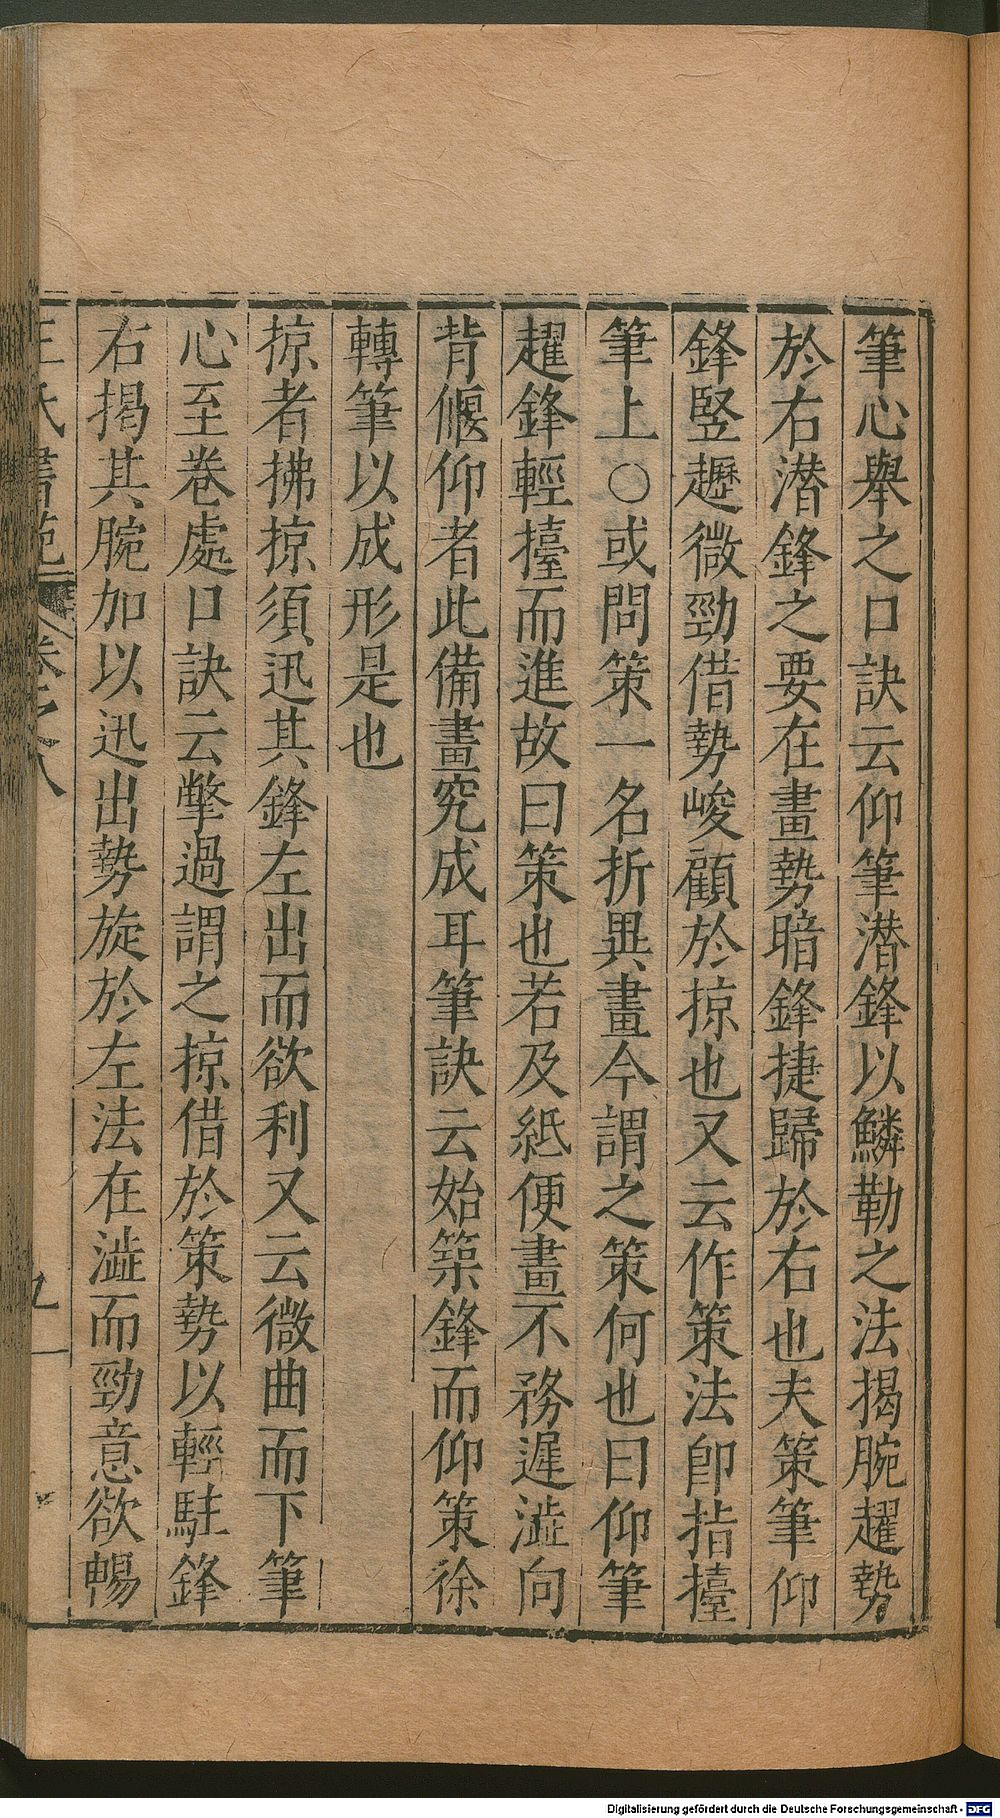 筆心舉之口訣云仰筆潛鋒以鱗勒之法揭腕趯勢
於右潛鋒之要在畫勢暗鋒捷歸於右也夫策筆仰
鋒竪趯微勁借勢峻顧於掠也又云作策法卽指擡
筆上○或問策一名折異畫今謂之策何也曰仰筆
趯鋒輕擡而進故曰策也若及紙便畫不務遲澁向
背偃仰者此備畫究成耳筆訣云始築鋒而仰策徐
轉筆以成形是也
掠者拂掠須迅其鋒左出而欲利又云微曲而下筆
心至卷處口訣云撆過謂之掠借於策勢以輕駐鋒
右揭其腕加以迅出勢旋於左法在澁而勁意欲暢
王氏書苑 卷之八 九
Digitalisierung gefördert durch die Deutsche Forschungsgemeinschaft - DFG